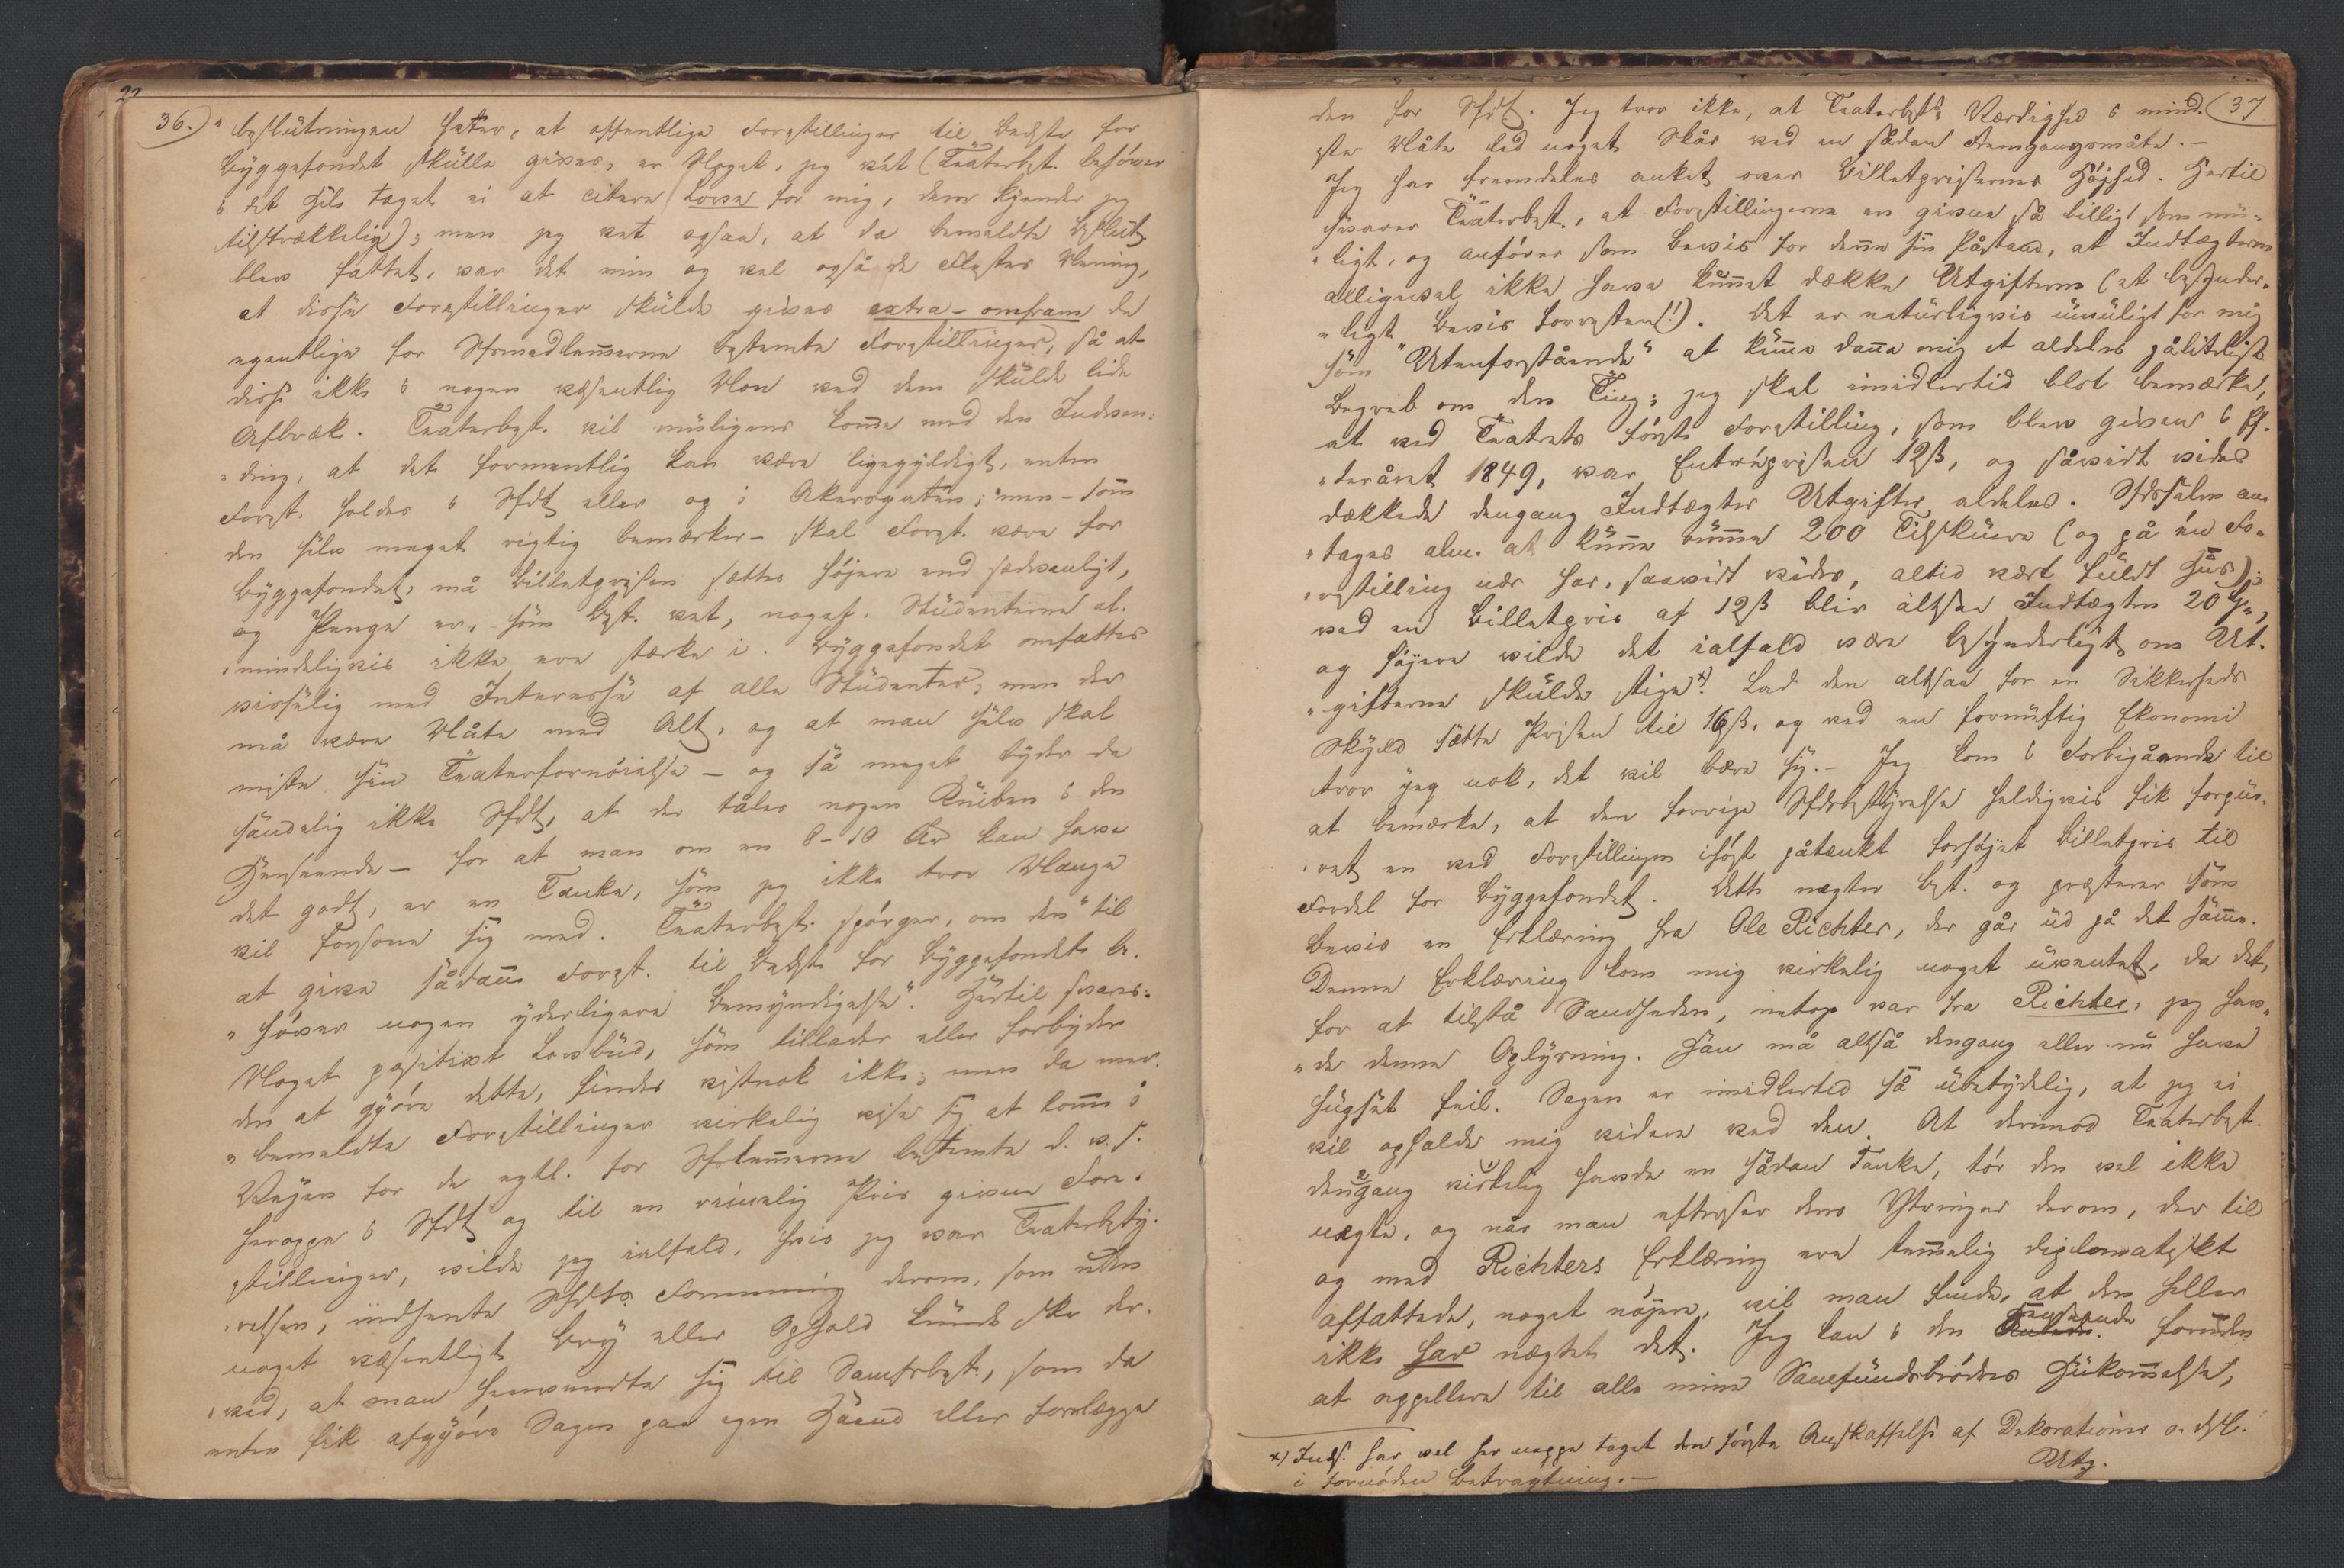 22
36.) "beslutningen heter, at offentlige Forestillinger til Bedste for
Byggefondet skulle gives, er Noget, jeg vet (Teaterbst. behøver
i det Hele taget ei at citere Lovene for mig, dem kjender jeg
tilstrækkelig); men jeg vet ogsaa, at da bemeldte Beslutn.
blev fattet, var det min og vel også de Flestes Mening,
at disse Forestillinger skulde gives extra - omfram de
egentlige for Sfsmedlemmerne bestemte Forestillinger, så at
disse ikke i nogen væsentlig Mon ved dem skulde lide
Afbræk. Teaterbst. vil muligens komme med den Indven-
"ding, at det formentlig kan være ligegyldigt, enten
Forest. holdes i Sfdt eller og i Akersgaten; men - som
den selv meget rigtig bemærker - skal Forest. være for
Byggefondet, må Billetprisen sættes højere end sædvanligt,
og Penge er, som Bst. vet, noget, Studenterne al-
"mindeligvis ikke ere stærke i. Byggefondet omfattes
visselig med Interesse af alle Studenter; men der
må være Måte med Alt, og at man selv skal
miste sin Teaterfornøielse - og så meget byder da
sandelig ikke Sfdt, at der tåles nogen Kniben i den
Henseende - for at man om en 8-10 År kan have
det godt, er en Tanke, som jeg ikke tror Mange
vil forsone sig med. Teaterbst. spørger, om den "til
at give sådanne Forest. til Bedste for Byggefondet be-
"høver nogen yderligere Bemyndigelse". Hertil svares:
Noget positivt Lovbud, som tillader eller forbyder
den at gjøre dette, findes vistnok ikke; men da mer-
"bemeldte Forestillinger virkelig viste sig at komme i
Vejen for de egtl. for Sfslemmerne bestemte d. v. s.
heroppe i Sfdt og til en rimelig Pris givne Fore-
stillinger, vilde jeg ialfald, hvis jeg var Teaterbesty-
"relsen, indhente Sfdts. Formening derom, som uden
noget væsentligt Bry eller Ophold kunde ske der-
"ved, at man henvendte sig til Samfbst., som da
enten fik afgjøre Sagen paa egen Haand eller forelægge
37
den for Sfdt. Jeg tror ikke, at Teaterbsts. Værdighed i mind-
ste Måte led noget Skår ved en sådan Fremgangsmåte. -
Jeg har fremdeles anket over Billetprisernes Højhed. Hertil
svarer Teaterbst., at Forestillingerne er givne så billigt som mu-
"ligt, og anfører som Bevis for denne sin Påstand, at Indtægterne
alligevel ikke have kunnet dække Utgifterne (et besynder-
"ligt Bevis forresten!). Det er naturligvis umuligt for mig
som "Utenforstående" at kunne danne mig et aldeles påliteligt
Begreb om den Ting; jeg skal imidlertid blot bemærke,
at ved Teatrets første Forestilling, som blev given i Stu-
"deråret 1849, var Entréprisen 12ß, og såvidt vides
dækkede dengang Indtægter Utgifter aldeles. Sfdssalen an-
"tages alm. at kunne rumme 200 Tilskuere (og på én Fo-
"restilling nær har, saavidt vides, altid vært fuldt Hus);
ved en Billetpris af 12ß blir altsaa Indtægten 20 Spd.,
og højere vilde det ialfald være besynderligt om Ut-
"gifterne skulde stige x). Lad den altsaa for en Sikkerheds
Skyld sætte Prisen til 16ß, og ved en fornuftig Ekonomi
tror jeg nok, det vil bære sig. - Jeg kom i Forbigående til
at bemærke, at den forrige Sfdsbestyrelse heldigvis fik forpur-
"ret en ved Forestillingen ihøst påtænkt forhøjet Billetpris til
Fordel for Byggefondet. Dette nægter Bst. og presterer som
Bevis en Erklæring fra Ole Richter, der går ud på det samme.
Denne Erklæring kom mig virkelig noget uventet, da det,
for at tilstå Sandheden, netop var fra Richter, jeg hav-
"de denne Oplysning. Han må altså dengang eller nu have
husket feil. Sagen er imidlertid så ubetydelig, at jeg ei
vil opholde mig videre ved den. At derimod Teaterbst.
dengang virkelig havde en sådan Tanke, tør den vel ikke
nægte, og når man efterser dens Ytringer derom, der til
og med Richters Erklæring ere temmelig diplomatiskt
affattede, noget nøjere, vil man finde, at den heller
ikke har nægtet det. Jeg kan i den Henseende foruden
at appellere til alle mine Samfundsbrødres Hukommelse,
x) Inds. har vel her neppe taget den første Anskaffelse af Dekorationer o. dsl.
i fornøden Betragtning. -
Utg.